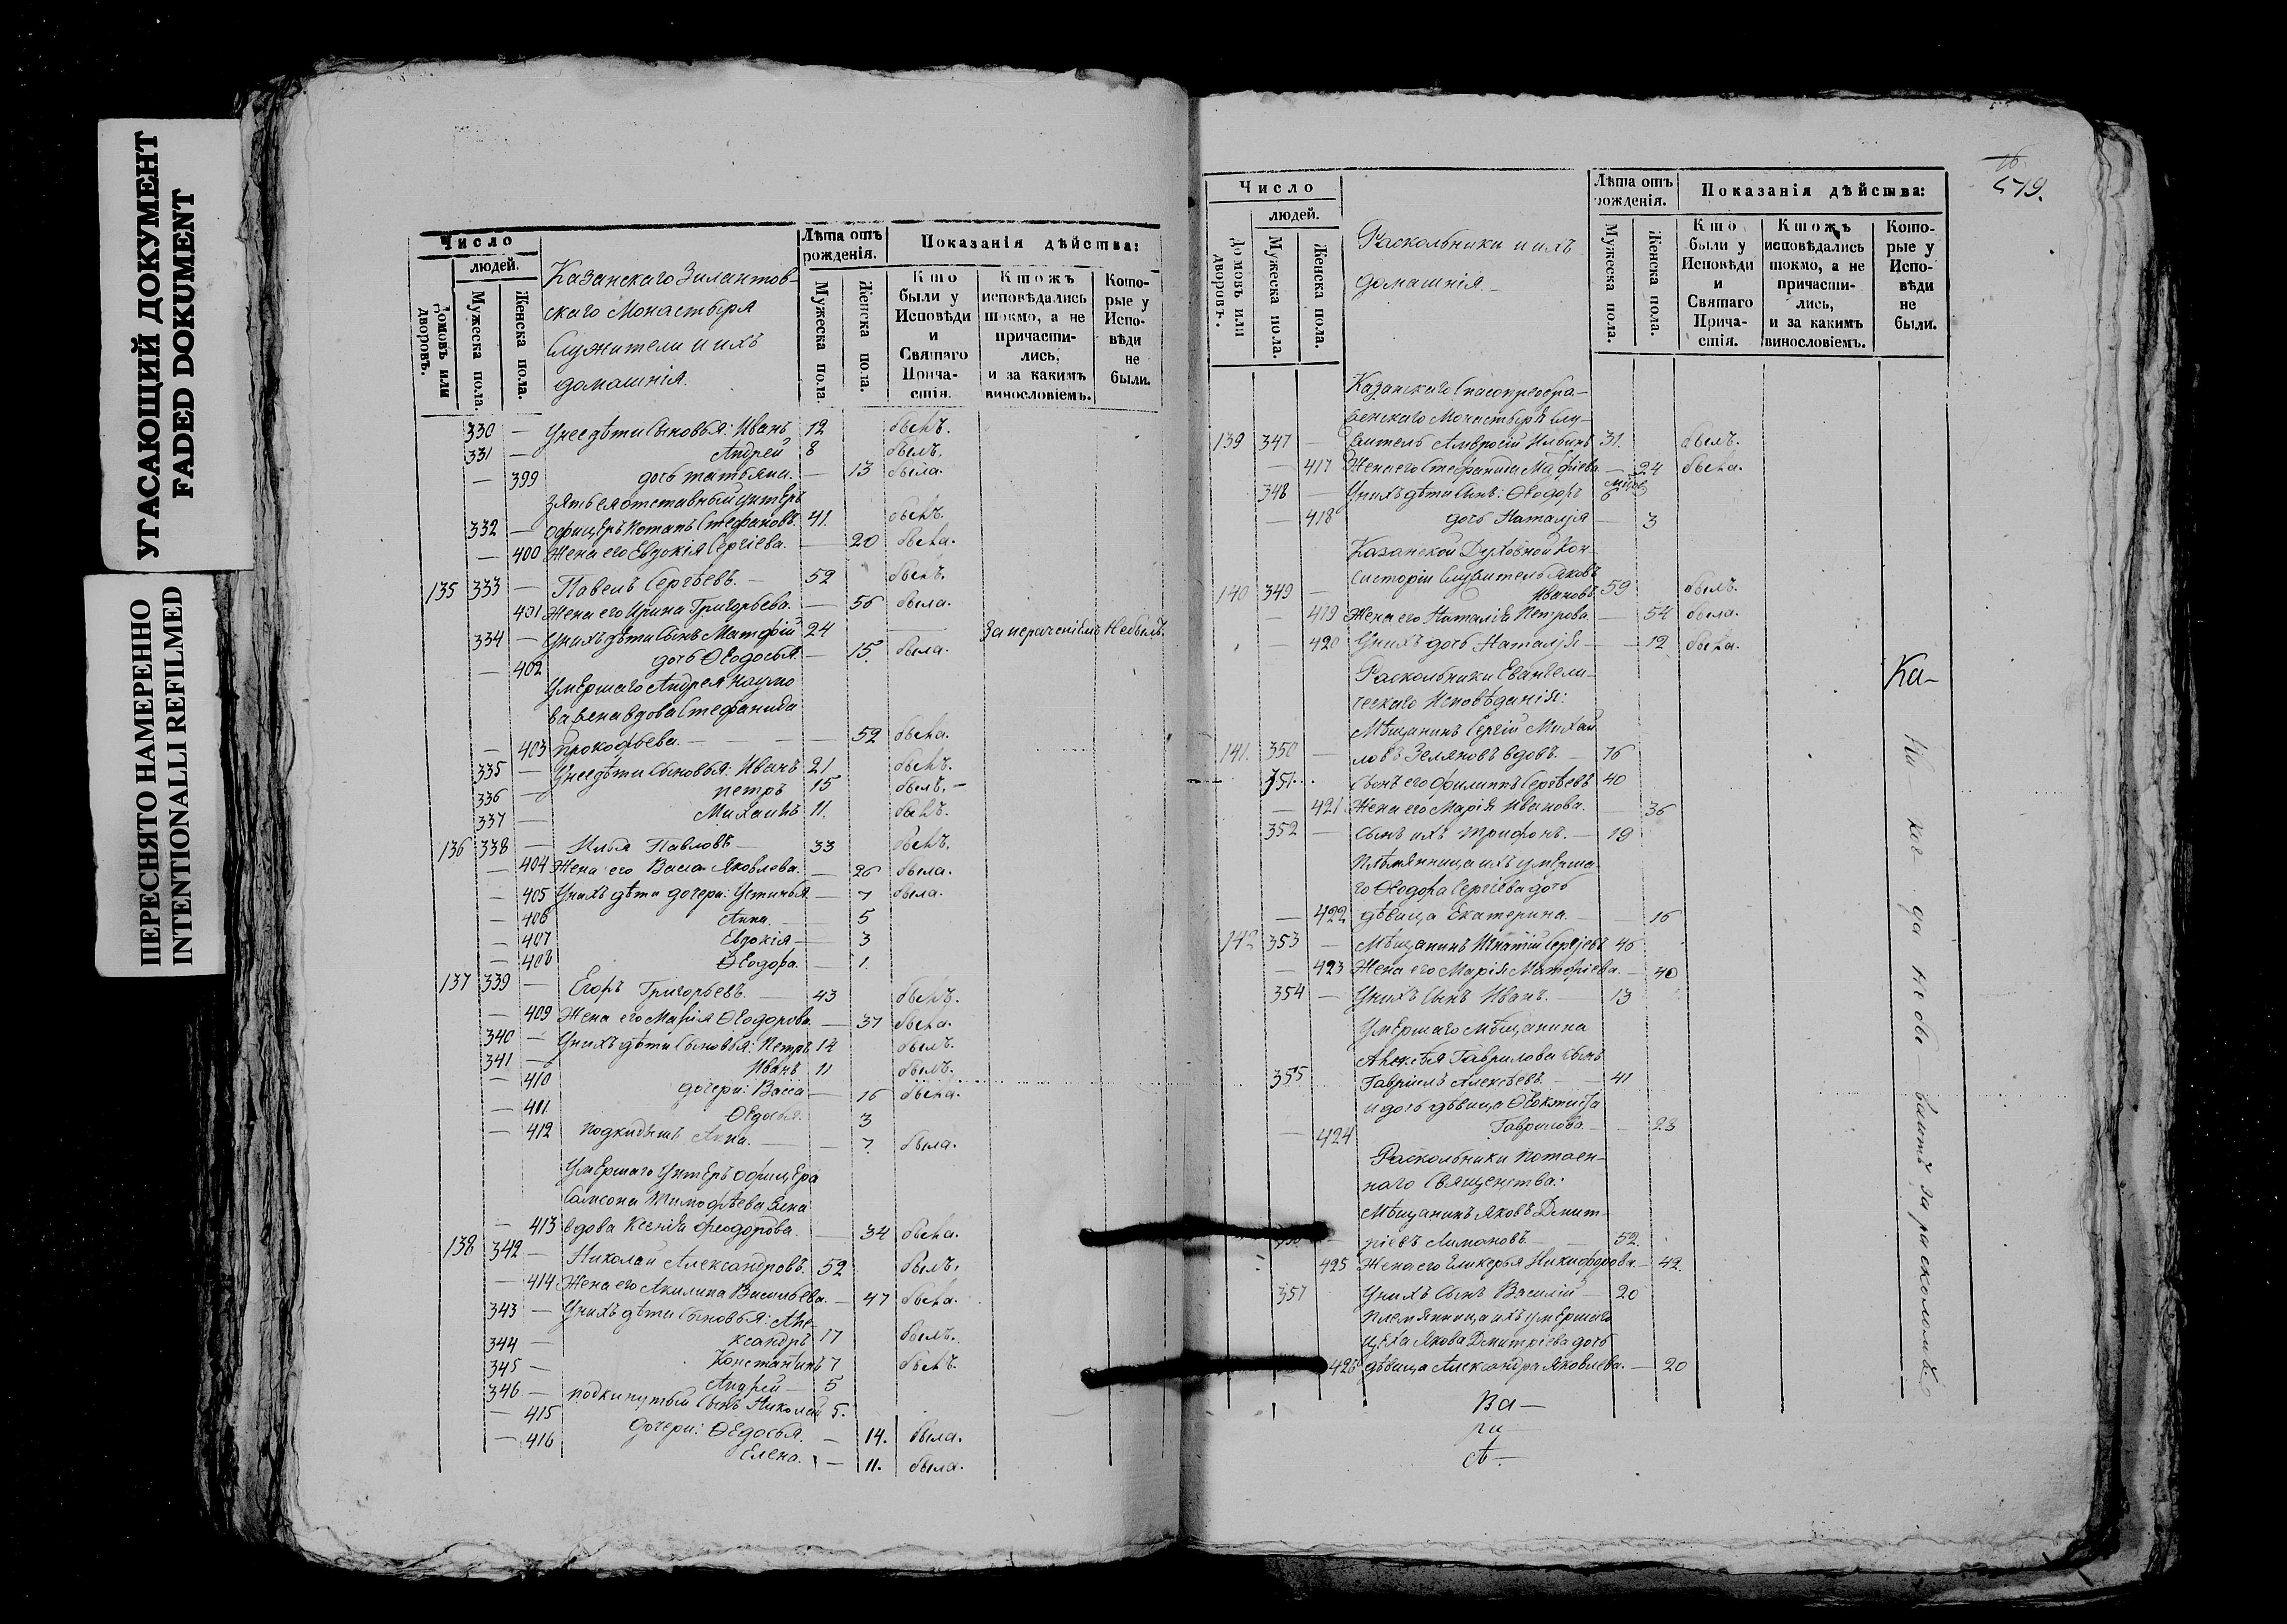 УГАСАЮЩИЙ ДОКУМЕНТ
FADED DOKUMENT
ПЕРЕСНЯТО НАМЕРЕННО
INTENTIONALLI REFILMED
Число
людей.
Домовъ или дворовъ.
Мужеска пола.
Женска пола.
Казанскаго Зилантов-
скаго Монастыря
служители и ихъ
домашнія.
Лѣта отъ рожденія.
Мужеска пола.
Женска пола.
Показанія дѣйства:
Кто были у Исповѣди и Святаго Прича-стія.
Ктожъ исповѣдались токмо, а не причасти-лись, и за какимъ винословіемъ.
Кото-рые у Испо-вѣди не были.
330 — У нее дѣти сыновья: Иванъ 12 былъ.
331 — Андрей 8 былъ.
— 399 дочь Татьяна. — 13 была.
Зять ея отставный унтеръ
332 — офицеръ Потапъ Стефановъ. 41. былъ.
— 400 Жена его Евдокія Сергіева. — 20 была.
135 333 — Павелъ Сергѣевъ. — 52 былъ.
401 Жена его Ирина Григорьева. — 56 была.
334 — У нихъ дѣти сынъ Матфій 24 — За нераченіемъ не былъ.
— 402 дочь Ѳеодосья. — 15. была.
Умершаго Андрея Наумо
ва жена вдова Стефанида
— 403 Прокофьева. — — 52 была.
335 — У нее дѣти сыновья: Иванъ 21 былъ.
336 — Петръ 15 былъ. —
337 — Михаилъ 11. былъ.
136 338 — Илья Павловъ — 33 былъ.
— 404 Жена его Васса Яковлева. — 26 была.
— 405 У нихъ дѣти дочери: Устинья — 7 была.
— 406 Анна. — 5
— 407 Евдокія — 3
— 408 Ѳеодора. — 1.
137 339 — Егоръ Григорьевъ. — 43 былъ.
— 409 Жена его Марія Ѳеодорова. — 37 была.
340 — У нихъ дѣти сыновья: Петръ 14 былъ.
341 — Иванъ 11 былъ.
— 410 дочери: Васса — 16 была.
— 411 Ѳедосья. 3
— 412 подкидышъ Анна. — 7. была.
Умершаго Унтеръ офицера
Самсона Тимофѣева жена
— 413 вдова Ксенія Феодорова. — 34 была.
138 342 — Николай Александровъ. 52 былъ.
— 414 Жена его Акилина Васильева. — 47 была.
343 — У нихъ дѣти сыновья: Але-
344 — ксандръ 17 былъ.
345 — Константинъ 7 былъ.
Андрей — 5
346 — подкинутый сынъ Николай 5.
— 415 дочери: Ѳедосья. — 14. была.
— 416 Елена. — 11. была.
519.
Число
людей.
Домовъ или дворовъ.
Мужеска пола.
Женска пола.
Раскольники и ихъ
домашнія. —
Лѣта отъ рожденія.
Мужеска пола.
Женска пола.
Показанія дѣйства:
Кто были у Исповѣди и Святаго Прича-стія.
Ктожъ исповѣдались токмо, а не причасти-лись, и за какимъ винословіемъ.
Кото-рые у Испо-вѣди не были.
Казанскаго Спасопреобра-
женскаго Монастыря слу-
139 347 — житель Амвросій Ильинъ 31. былъ.
— 417 Жена его Стефанида Матфіева — 24 была.
348 — У нихъ дѣти сынъ: Ѳеодоръ 6
— 418 дочь Наталія — 3
Казанской Духовной Кон-
систоріи служитель Яковъ
140 349 — Ивановъ 59 былъ.
— 419 Жена его Наталія Петрова. — 54 была.
— 420 У нихъ дочь Наталія — 12 была.
Раскольники Евангели-
ческаго Исповѣданія:
Мѣщанинъ Сергій Михай
141. 350 — ловъ Зеляновъ вдовъ. — 76
351 Сынъ его Филиппъ Сергѣевъ 40
— 421 Жена его Марія Иванова. — 36
352 — Сынъ ихъ Трифонъ. — 19
Племянница ихъ умерша
го Ѳеодора Сергіева дочь
— 422 дѣвица Екатерина. — 16
142 353 — Мѣщанинъ Игнатій Сергіевъ 46
— 423 Жена его Марія Матфіева. — 40
354 — У нихъ сынъ Иванъ. — 13
Умершаго мѣщанина
Алексѣя Гаврилова сынъ
355 Гавріилъ Алексѣевъ. — 41
и дочь дѣвица Ѳеоктиста
— 424 Гаврилова. — 23
Раскольники потаен-
наго Священства.
Мѣщанинъ Яковъ Дмит-
ріевъ Лимоновъ. 52.
425 Жена его Гликерья Никифорова. — 42.
357 У нихъ сынъ Василій — 20
Племянница ихъ умершаго
цеха Якова Дмитріева дочь
426 дѣвица Александра Яковлева. — 20
Ка-
Ни ког да не бы вали за расколомъ.
Ва—